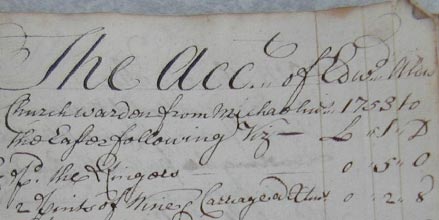 The Acc.. of Edwd. Allen
Churchwarden from Michaelmas 1753 to
the Easter following Viz— L " S " D
pd. the Ringers — 0 " 5 " 0
2 pints of Wine & Carriage 0 " 2 " 8